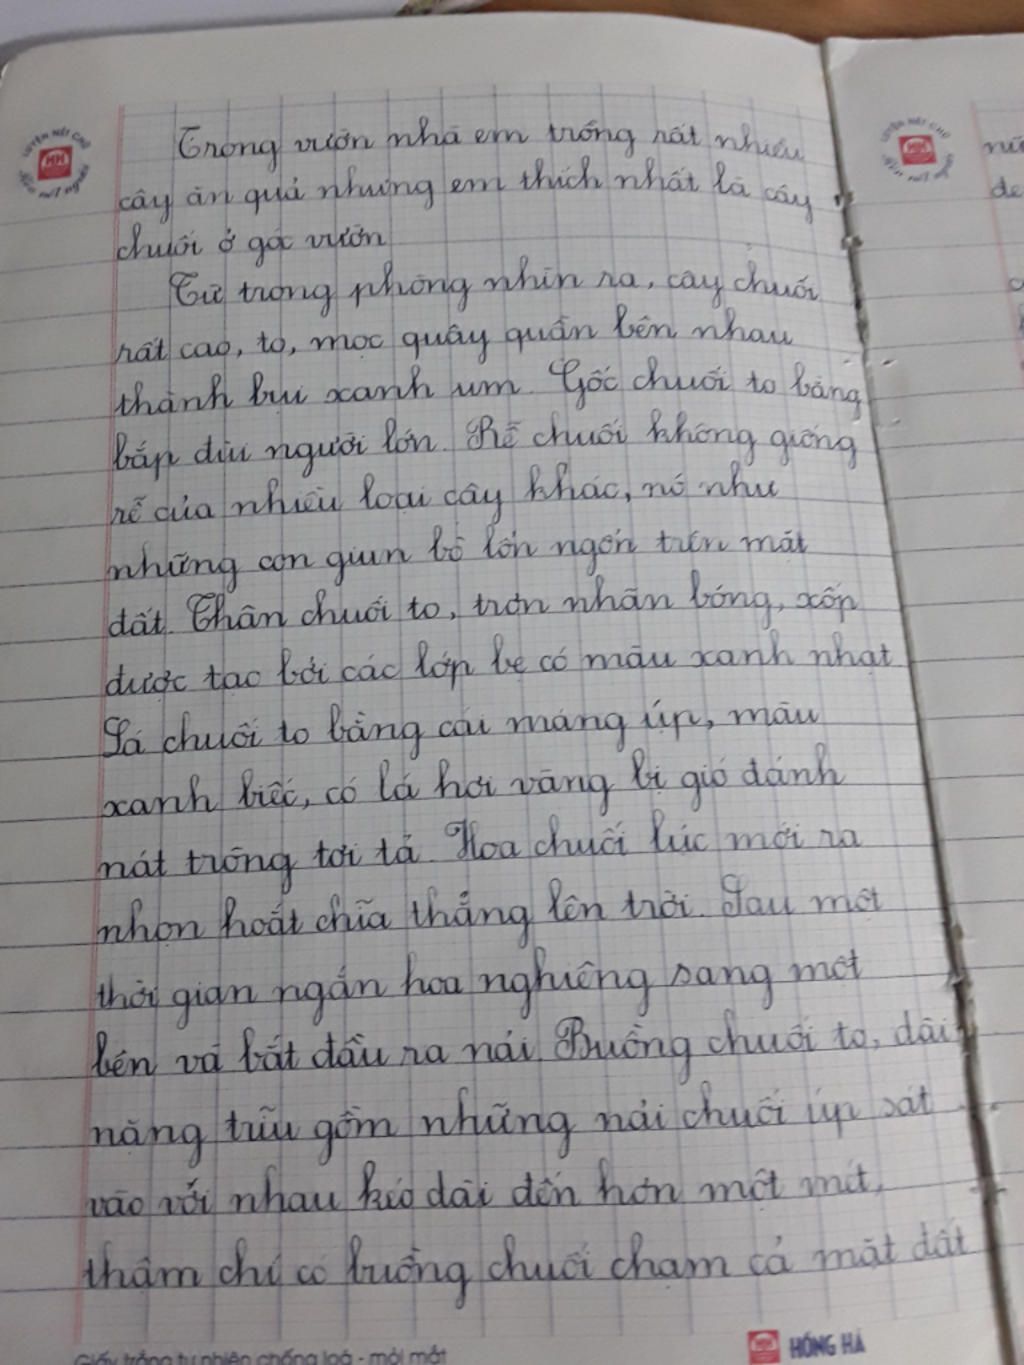 LUYỆN NÉT CHỮ
Rèn nết người
HH
Trong vườn nhà em trồng rất nhiều
cây ăn quả nhưng em thích nhất là cây
chuối ở góc vườn
Từ trong phòng nhìn ra, cây chuối
rất cao, to, mọc quây quần bên nhau
thành bụi xanh um. Gốc chuối to bằng
bắp đùi người lớn. Rễ chuối không giống
rễ của nhiều loại cây khác, nó như
những con giun bò lổn ngổn trên mặt
đất. Thân chuối to, trơn nhẵn bóng, xốp
được tạo bởi các lớp bẹ có màu xanh nhạt
Lá chuối to bằng cái máng úp, màu
xanh biếc, có lá hơi vàng bị gió đánh
nát trông tơi tả. Hoa chuối lúc mới ra
nhọn hoắt chĩa thẳng lên trời. Sau một
thời gian ngắn hoa nghiêng sang một
bên và bắt đầu ra nải. Buồng chuối to, dài
nặng trĩu gồm những nải chuối úp sát
vào với nhau kéo dài đến hơn một mét,
thậm chí có buồng chuối chạm cả mặt đất
Giấy trắng tự nhiên chống loá - mỏi mắt
HỒNG HÀ